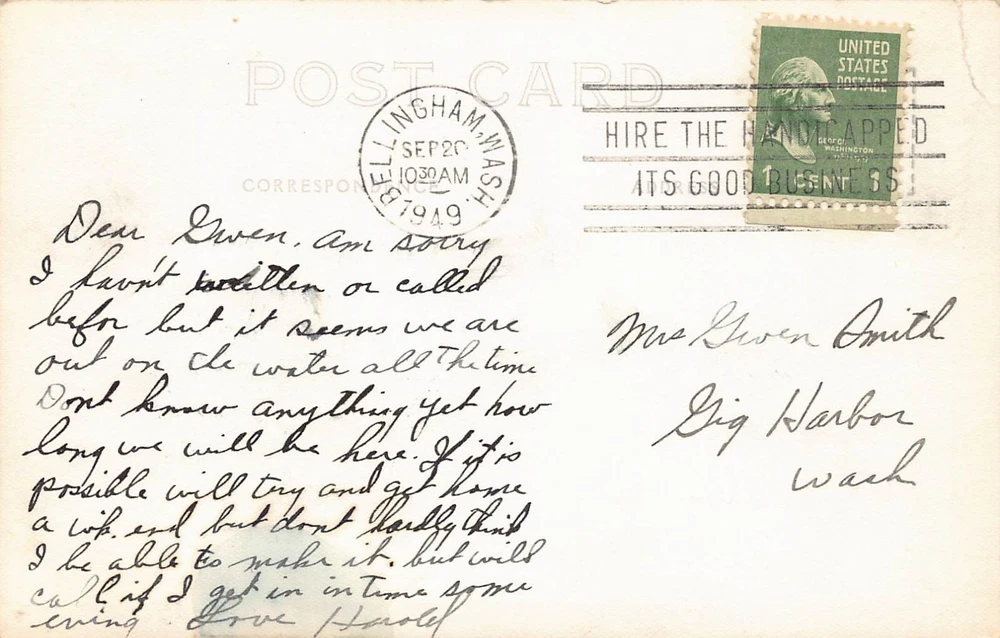 POST CARD
CORRESPONDENCE
ADDRESS
BELLINGHAM, WASH.
SEP 20
10 30 AM
1949
HIRE THE HANDICAPPED
ITS GOOD BUSINESS
UNITED
STATES
POSTAGE
GEORGE
WASHINGTON
1 CENT 1
Dear Gwen. am sorry
I havn't written or called
befor but it seems we are
out on the water all the time
Dont know anything yet how
long we will be here. If it is
possible will try and get home
a wk. end but dont hardly think
I be able to make it. but will
call if I get in in time some
evning. Love Harold
Mrs Gwen Smith
Gig Harbor
Wash